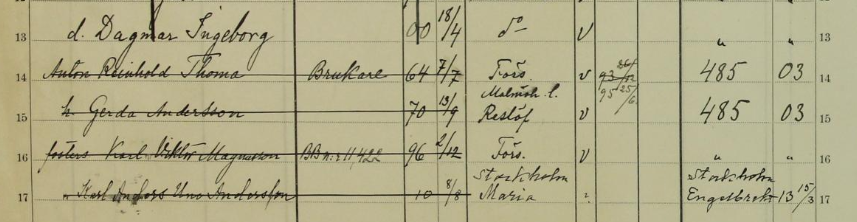 13 d. Dagmar Ingeborg 00 18/4 do v " " 13
14 Anton Reinhold Thoma Brukare 64 7/7 Förs. v 485 03 14
15 h. Gerda Andersson 70 13/9 Malmöh. l. Reslöf v 95 25/6 485 03 15
16 fosters Karl Viktor Magnusson BB n:r 11,422 96 2/12 Förs. v " " 16
17 " Karl Anders Uno Andersson 10 8/8 Stockholm Maria Stockholm Engelbrekt 13 15/3 17